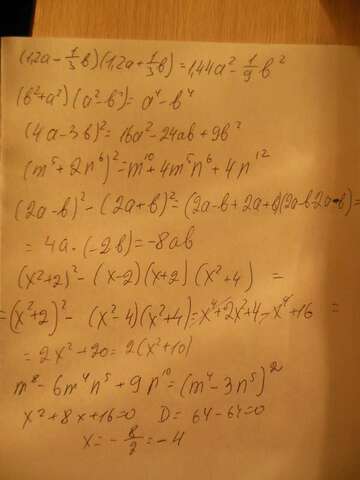 (1,2a - 1/3 в)(1,2a + 1/3 в) = 1,44a² - 1/9 в²
(в² + a²)(a² - в²) = a⁴ - в⁴
(4a - 3в)² = 16a² - 24aв + 9в²
(m⁵ + 2n⁶)² = m¹⁰ + 4m⁵n⁶ + 4n¹²
(2a - в)² - (2a + в)² = (2a - в + 2a + в)(2a - в - 2a - в) =
= 4a · (-2в) = -8aв
(x² + 2)² - (x - 2)(x + 2)(x² + 4) =
= (x² + 2)² - (x² - 4)(x² + 4) = x⁴ + 2x² + 4 - x⁴ + 16 =
= 2x² + 20 = 2(x² + 10)
m⁸ - 6m⁴n⁵ + 9n¹⁰ = (m⁴ - 3n⁵)²
x² + 8x + 16 = 0 D = 64 - 64 = 0
x = - 8/2 = -4